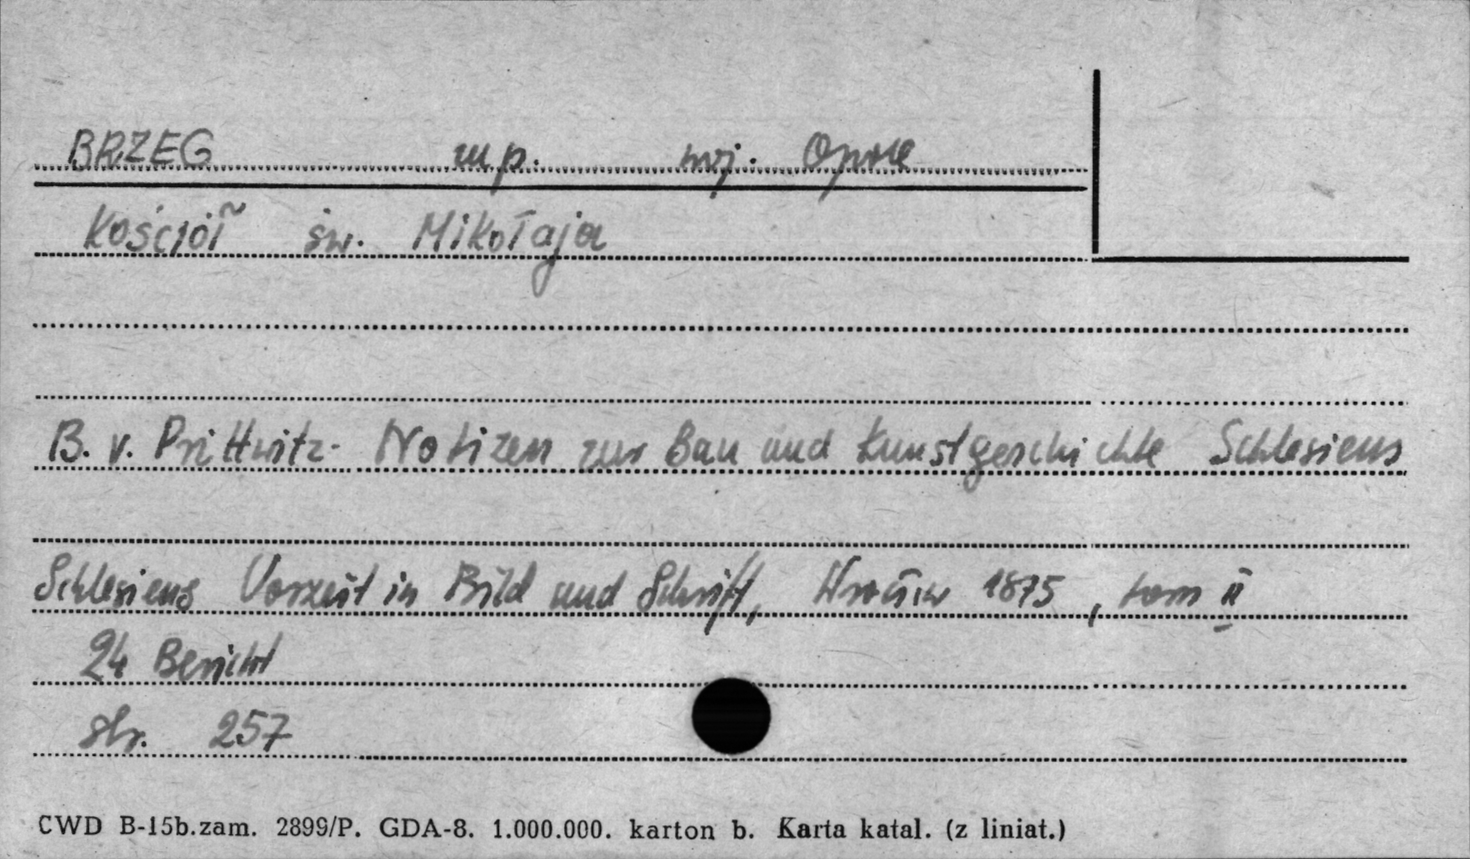 BRZEG m.p. woj. Opole
Kościół św. Mikołaja
B. v. Prittwitz - Notizen zur Bau und Kunstgeschichte Schlesiens
Schlesiens Vorzeit in Bild und Schrift, Wrocław 1875, tom II
24 Bericht
str. 257
CWD B-15b.zam. 2899/P. GDA-8. 1.000.000. karton b. Karta katal. (z liniat.)